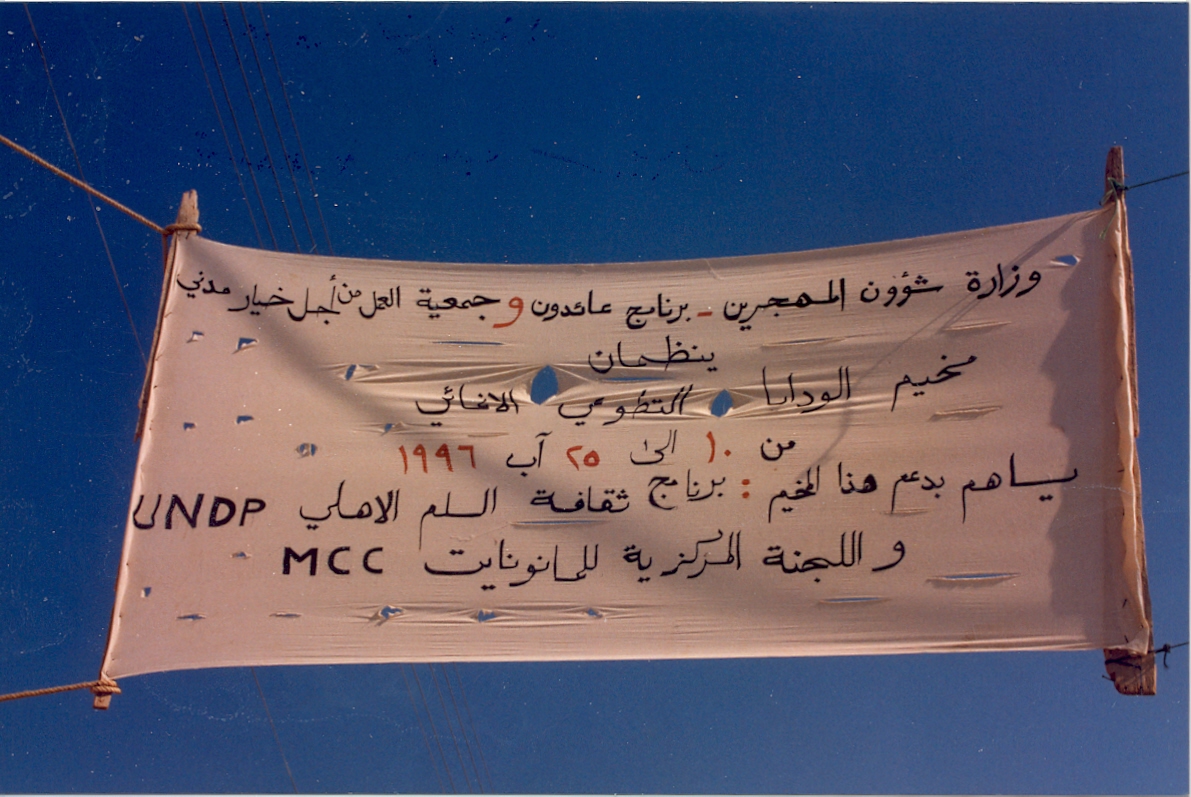 وزارة شؤون المهجرين - برنامج عائدون و جمعية العمل من أجل خيار مدني
ينظمان
مخيم الودايا التطوعي الانمائي
من ١٠ الى ٢٥ آب ١٩٩٦
يساهم بدعم هذا المخيم : برنامج ثقافة السلم الاهلي UNDP
و اللجنة المركزية للمانونايت MCC